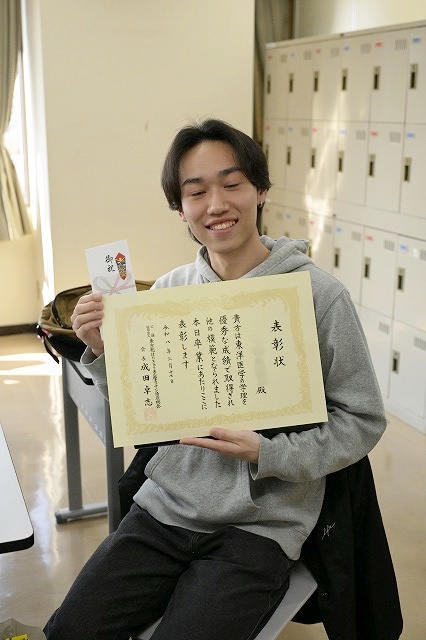 御祝
表彰状
殿
貴方は東洋医学の学理を
優秀な成績で取得され
他の模範となられました
本日卒業にあたりここに
表彰します
令和八年三月十日
会長 成田卓志